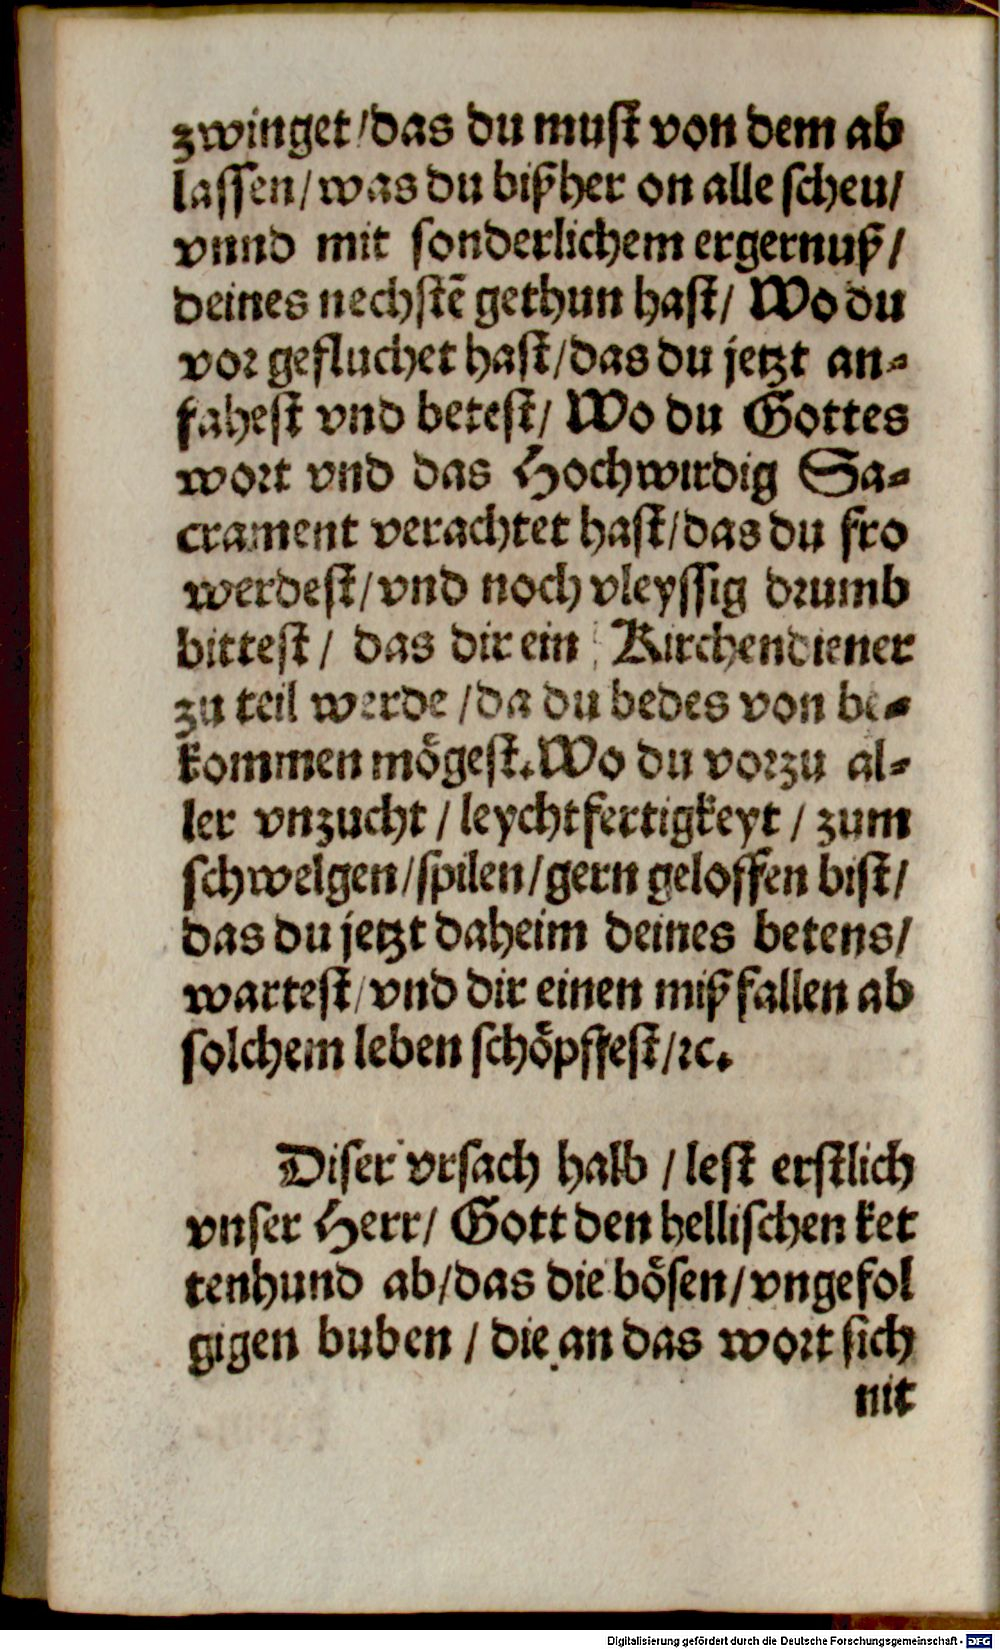 zwinget/das du must von dem ab
lassen/was du bißher on alle scheu/
vnnd mit sonderlichem ergernuß/
deines nechstẽ gethun hast/ Wo du
vor gefluchet hast/das du jetzt an-
fahest vnd betest/ Wo du Gottes
wort vnd das Hochwirdig Sa-
crament verachtet hast/das du fro
werdest/vnd noch vleyssig drumb
bittest/ das dir ein Kirchendiener
zu teil werde/da du bedes von be-
kommen mögest. Wo du vorzu al-
ler vnzucht/leychtfertigkeyt/zum
schwelgen/spilen/gern geloffen bist/
das du jetzt daheim deines betens/
wartest/vnd dir einen mißfallen ab
solchem leben schöpffest/ꝛc.
Diser vrsach halb/lest erstlich
vnser Herr/ Gott den hellischen ket
tenhund ab/das die bösen/vngefol
gigen buben/die an das wort sich
nit
Digitalisierung gefördert durch die Deutsche Forschungsgemeinschaft - DFG